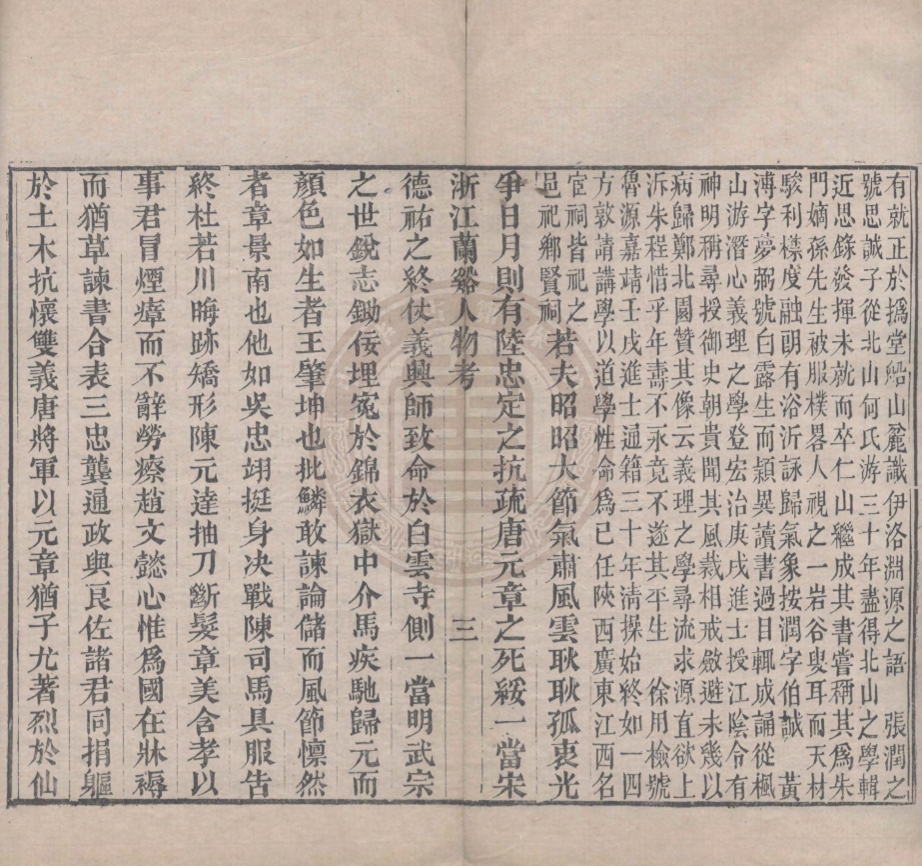 有就正於撝堂船山麓讖伊洛淵源之語　張潤之
號思誠子從北山何氏游三十年盡得北山之學輯
近思錄發揮未就而卒仁山繼成其書嘗稱其爲朱
門嫡孫先生被服樸畧人視之一岩谷叟耳而天材
駿利襟度融朗有浴沂詠歸氣象按潤字伯誠　黃
溥字夢弼號白露生而頴異讀書過目輒成誦從楓
山游潛心義理之學登宏治庚戌進士授江陰令有
神明稱尋授御史朝貴聞其風裁相戒斂避未幾以
病歸鄭北園贊其像云義理之學尋流求源直欲上
泝朱程惜乎年壽不永竟不遂其平生　徐用檢號
魯源嘉靖壬戌進士通籍三十年清操始終如一四
方敦請講學以道學性命爲己任陝西廣東江西名
宦祠皆祀之
邑祀鄉賢祠
若夫昭昭大節氣肅風雲耿耿孤衷光
爭日月則有陸忠定之抗疏唐元章之死綏一當宋
浙江蘭谿人物考　三
德祐之終仗義興師致命於白雲寺側一當明武宗
之世銳志鋤佞埋寃於錦衣獄中介馬疾馳歸元而
顔色如生者王肇坤也批鱗敢諫論儲而風節懔然
者章景南也他如吳忠翊挺身决戰陳司馬具服告
終杜若川晦跡矯形陳元達抽刀斷髮章美含孝以
事君冒煙瘴而不辭勞瘵趙文懿心惟爲國在牀褥
而猶草諫書合表三忠龔通政與艮佐諸君同捐軀
於土木抗懷雙義唐將軍以元章猶子尤著烈於仙